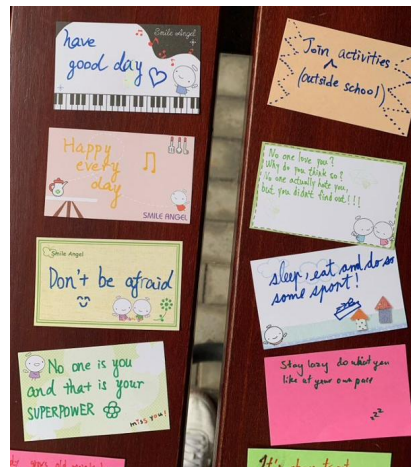 Smile Angel
have
good day
Happy
every
day
SMILE ANGEL
Smile Angel
Don't be afraid
No one is you
and that is your
SUPERPOWER
miss you!
Join activities
(outside school)
No one love you?
Why do you think so?
No one actually hate you,
but you didn't find out!!!
sleep, eat and do so
some sport!
Stay lazy do what you
like at your own pace
zz